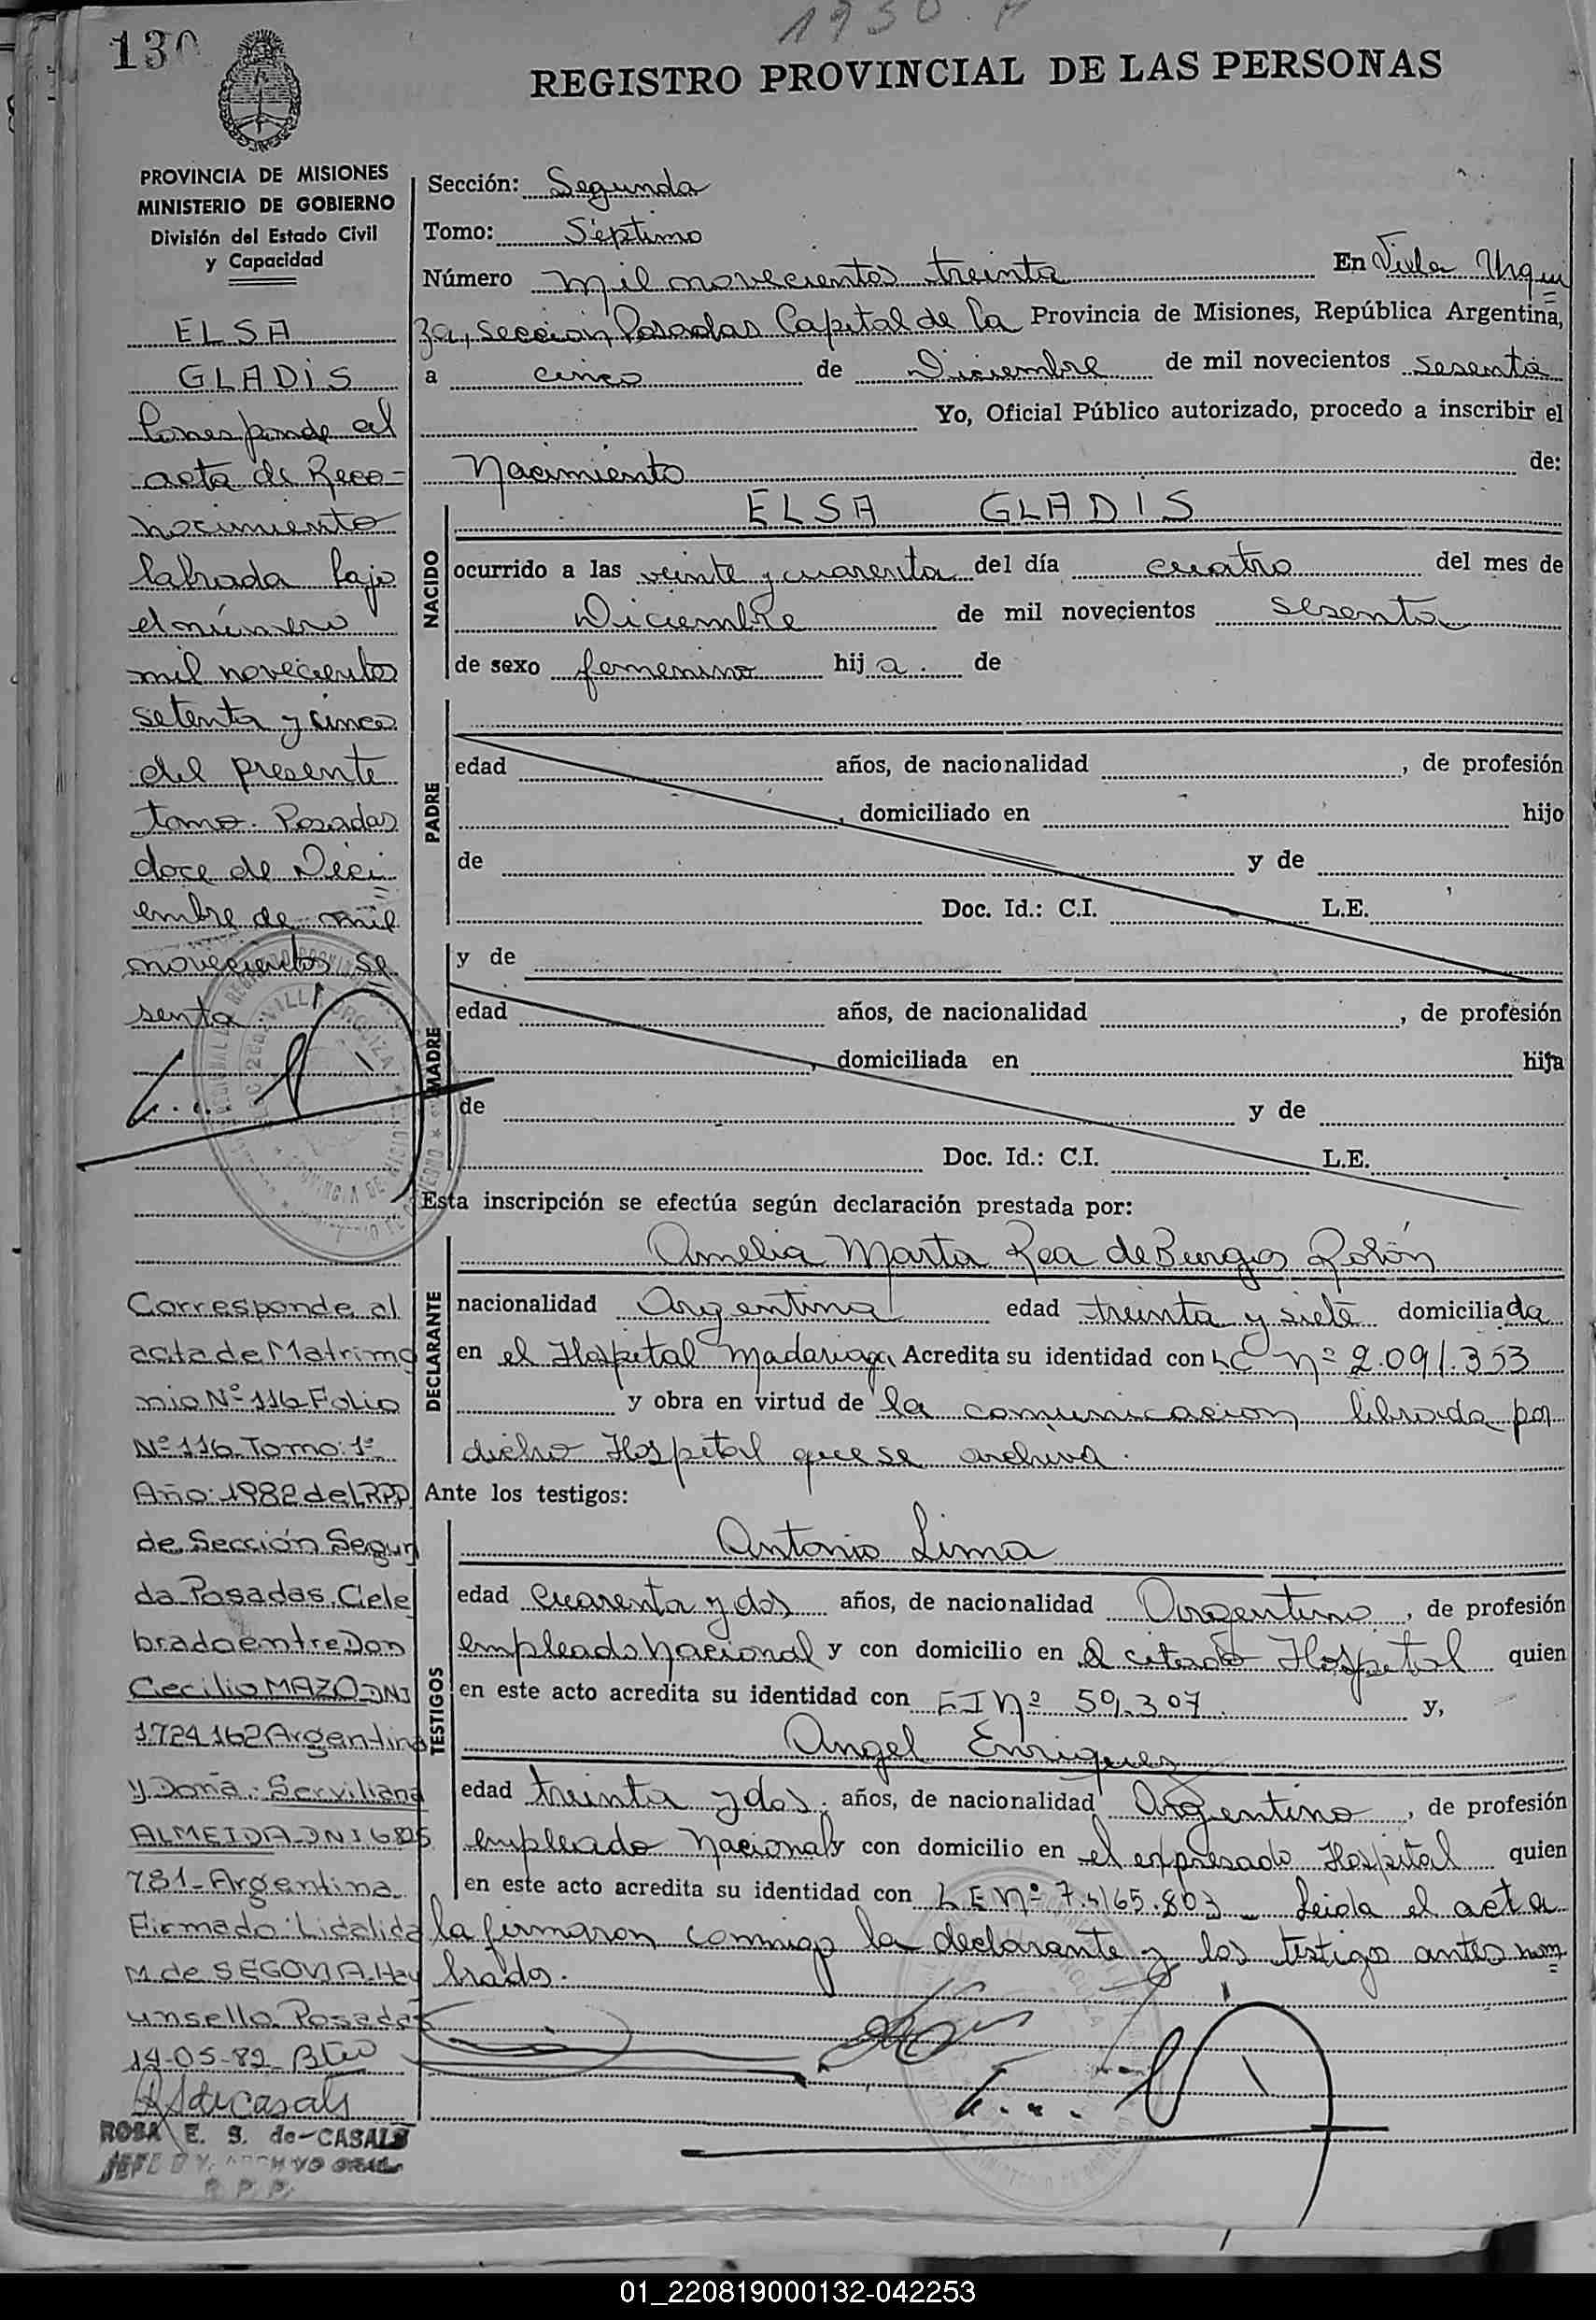 1930
130
REGISTRO PROVINCIAL DE LAS PERSONAS
PROVINCIA DE MISIONES
MINISTERIO DE GOBIERNO
División del Estado Civil
y Capacidad
ELSA
GLADIS
Corresponde al
acta de Reco=
nocimiento
labrada bajo
el número
mil novecientos
setenta y cinco
del presente
tomo. Posadas
doce de Dici
embre de mil
novecientos se
senta
Corresponde al
acta de Matrimo
nio Nº 116 Folio
Nº 116 Tomo: 1º
Año: 1982 del RPP
de Sección Segun
da Posadas. Cele
brado entre Don
Cecilio MAZO DNI
1724162 Argentino
y Doña: Serviliana
ALMEIDA DNI 6805
781- Argentina
Firmado: Lidalida
M. de SEGOVIA. Hay
un sello. Posadas
14-05-82
ROSA E. S. de CASALS
Sección: Segunda
Tomo: Séptimo
Número mil novecientos treinta En Villa Urqui
za, sección Posadas Capital de la Provincia de Misiones, República Argentina,
a cinco de Diciembre de mil novecientos sesenta
Yo, Oficial Público autorizado, procedo a inscribir el
Nacimiento de:
NACIDO
ELSA GLADIS
ocurrido a las veinte y cuarenta del día cuatro del mes de
Diciembre de mil novecientos sesenta
de sexo femenino hija. de
PADRE
edad años, de nacionalidad , de profesión
, domiciliado en hijo
de y de
Doc. Id.: C.I. L.E.
y de
MADRE
edad años, de nacionalidad , de profesión
, domiciliada en hija
de y de
Doc. Id.: C.I. L.E.
Esta inscripción se efectúa según declaración prestada por:
DECLARANTE
Amelia Marta Rea de Burgos Rolón
nacionalidad Argentina edad treinta y siete domiciliada
en el Hospital Madariaga Acredita su identidad con LC nº 2.091.353
y obra en virtud de la comunicacion librada por
dicho Hospital que se archiva.
Ante los testigos:
TESTIGOS
Antonio Lima
edad cuarenta y dos años, de nacionalidad Argentino, de profesión
empleado Nacional y con domicilio en el citado Hospital quien
en este acto acredita su identidad con Nº 59.307. y,
Angel Enriquez
edad treinta y dos, años, de nacionalidad Argentino, de profesión
empleado Nacional y con domicilio en el expresado Hospital quien
en este acto acredita su identidad con LE Nº 7.465.803 - Leida el acta
la firmaron conmigo la declarante y los testigos antes nom
brados.
01_220819000132-042253